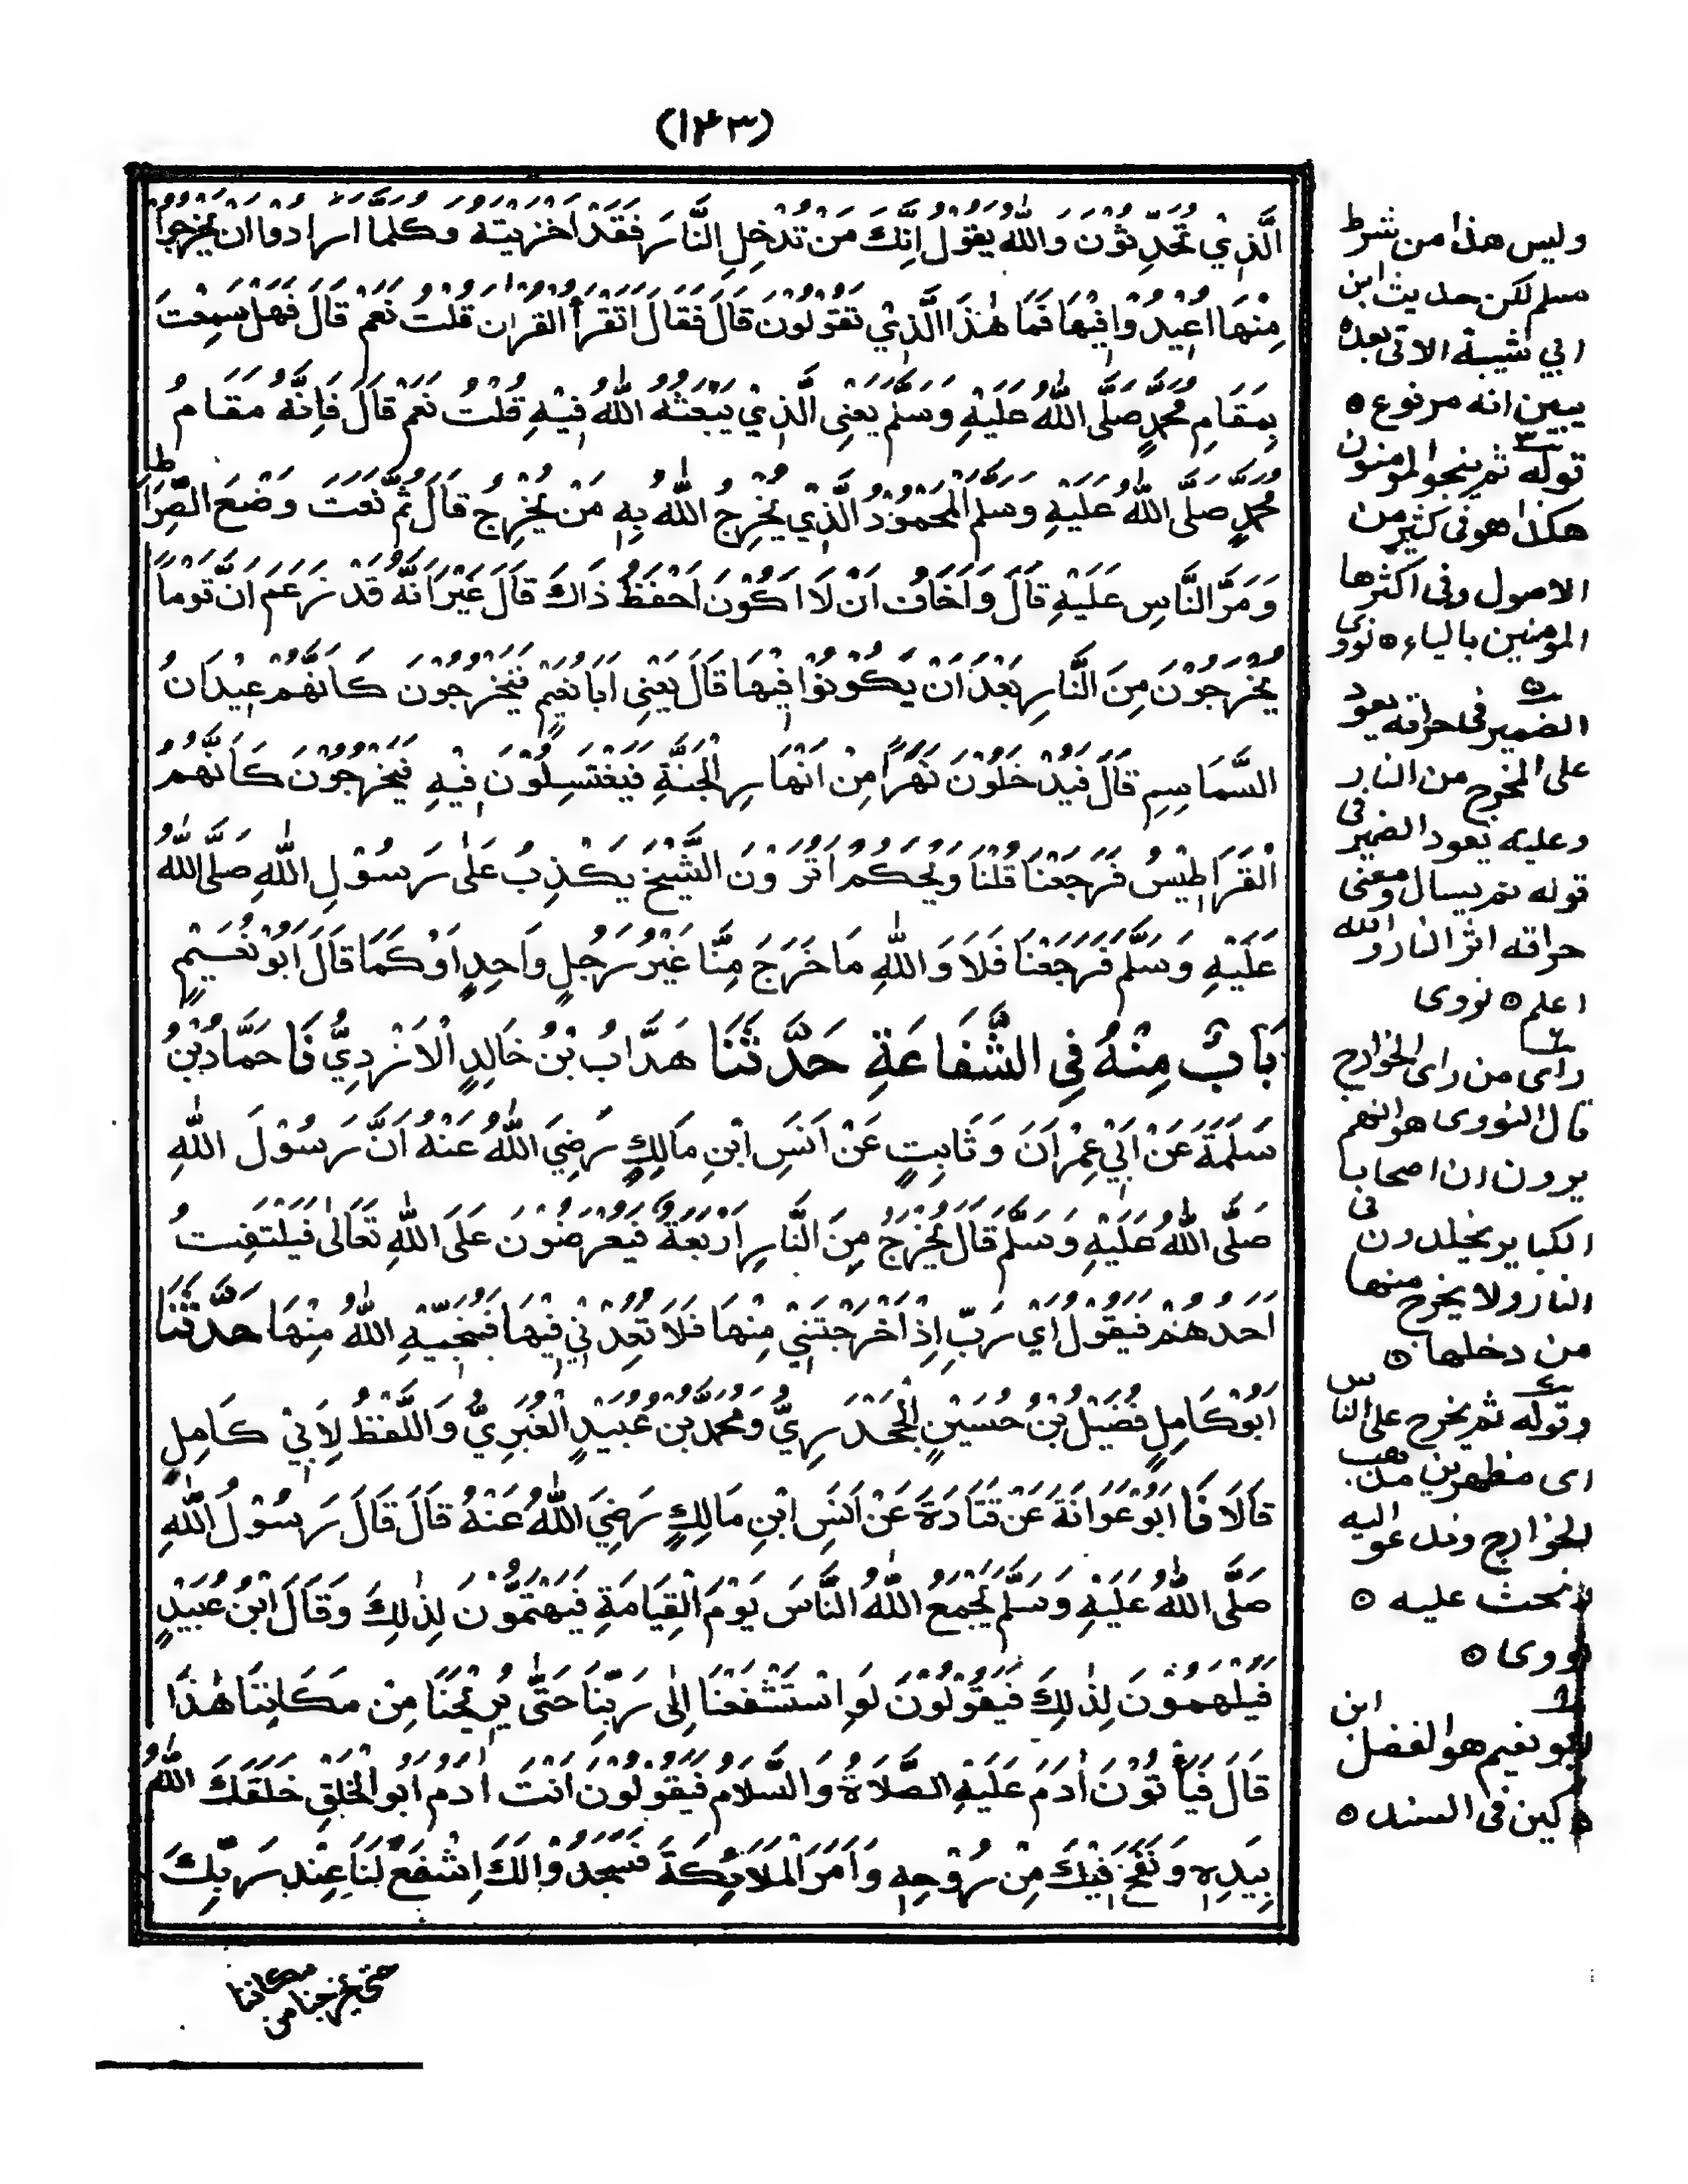 (١٤٣)
الَّذِيْ تُحَدِّثُوْنَ وَاللّٰهُ يَقُوْلُ اِنَّكَ مَنْ تُدْخِلِ النَّارَ فَقَدْ اَخْزَيْتَهُ وَكُلَّمَا اَرَادُوْا اَنْ يَخْرُجُوْا
مِنْهَا اُعِيْدُوْا فِيْهَا فَمَا هٰذَا الَّذِيْ تَقُوْلُوْنَ قَالَ فَقَالَ اَتَقْرَأُ الْقُرْاٰنَ قُلْتُ نَعَمْ قَالَ فَهَلْ سَمِعْتَ
بِمَقَامِ مُحَمَّدٍ صَلَّى اللّٰهُ عَلَيْهِ وَسَلَّمَ يَعْنِى الَّذِيْ يَبْعَثُهُ اللّٰهُ فِيْهِ قُلْتُ نَعَمْ قَالَ فَاِنَّهُ مَقَامُ
مُحَمَّدٍ صَلَّى اللّٰهُ عَلَيْهِ وَسَلَّمَ الْمَحْمُوْدُ الَّذِيْ يُخْرِجُ اللّٰهُ بِهِ مَنْ يُخْرِجُ قَالَ ثُمَّ نَعَتَ وَضْعَ الصِّرَاطِ
وَمَرَّ النَّاسِ عَلَيْهِ قَالَ وَاَخَافُ اَنْ لَا اَكُوْنَ اَحْفَظُ ذَاكَ قَالَ غَيْرَ اَنَّهُ قَدْ زَعَمَ اَنَّ قَوْمًا
يَخْرُجُوْنَ مِنَ النَّارِ بَعْدَ اَنْ يَكُوْنُوْا فِيْهَا قَالَ يَعْنِى اَبَا نُعَيْمٍ فَيَخْرُجُوْنَ كَاَنَّهُمْ عِيْدَانُ
السَّمَاسِمِ قَالَ فَيَدْخُلُوْنَ نَهَرًا مِنْ اَنْهَارِ الْجَنَّةِ فَيَغْتَسِلُوْنَ فِيْهِ فَيَخْرُجُوْنَ كَاَنَّهُمُ
الْقَرَاطِيْسُ فَرَجَعْنَا قُلْنَا وَيْحَكُمْ اَتُرَوْنَ الشَّيْخَ يَكْذِبُ عَلٰى رَسُوْلِ اللّٰهِ صَلَّى اللّٰهُ
عَلَيْهِ وَسَلَّمَ فَرَجَعْنَا فَلَا وَاللّٰهِ مَا خَرَجَ مِنَّا غَيْرُ رَجُلٍ وَاحِدٍ اَوْ كَمَا قَالَ اَبُوْ نُعَيْمٍ
بَابٌ مِنْهُ فِى الشَّفَاعَةِ حَدَّثَنَا هَدَّابُ بْنُ خَالِدٍ الْاَزْدِيُّ نَا حَمَّادُ بْنُ
سَلَمَةَ عَنْ اَبِيْ عِمْرَانَ وَثَابِتٍ عَنْ اَنَسِ ابْنِ مَالِكٍ رَضِيَ اللّٰهُ عَنْهُ اَنَّ رَسُوْلَ اللّٰهِ
صَلَّى اللّٰهُ عَلَيْهِ وَسَلَّمَ قَالَ يُخْرَجُ مِنَ النَّارِ اَرْبَعَةٌ فَيُعْرَضُوْنَ عَلَى اللّٰهِ تَعَالٰى فَيَلْتَفِتُ
اَحَدُهُمْ فَيَقُوْلُ اَيْ رَبِّ اِذْ اَخْرَجْتَنِيْ مِنْهَا فَلَا تُعِدْنِيْ فِيْهَا فَيُنَجِّيْهِ اللّٰهُ مِنْهَا حَدَّثَنَا
اَبُوْ كَامِلٍ فُضَيْلُ بْنُ حُسَيْنٍ الْجَحْدَرِيُّ وَمُحَمَّدُ بْنُ عُبَيْدٍ الْغُبَرِيُّ وَاللَّفْظُ لِاَبِيْ كَامِلٍ
قَالَا نَا اَبُوْ عَوَانَةَ عَنْ قَتَادَةَ عَنْ اَنَسِ ابْنِ مَالِكٍ رَضِيَ اللّٰهُ عَنْهُ قَالَ قَالَ رَسُوْلُ اللّٰهِ
صَلَّى اللّٰهُ عَلَيْهِ وَسَلَّمَ يَجْمَعُ اللّٰهُ النَّاسَ يَوْمَ الْقِيَامَةِ فَيَهْتَمُّوْنَ لِذٰلِكَ وَقَالَ ابْنُ عُبَيْدٍ
فَيُلْهَمُوْنَ لِذٰلِكَ فَيَقُوْلُوْنَ لَوِ اسْتَشْفَعْنَا اِلٰى رَبِّنَا حَتّٰى يُرِيْحَنَا مِنْ مَكَانِنَا هٰذَا
قَالَ فَيَأْتُوْنَ اٰدَمَ عَلَيْهِ الصَّلَاةُ وَالسَّلَامُ فَيَقُوْلُوْنَ اَنْتَ اٰدَمُ اَبُو الْخَلْقِ خَلَقَكَ اللّٰهُ
بِيَدِهٖ وَنَفَخَ فِيْكَ مِنْ رُوْحِهٖ وَاَمَرَ الْمَلَائِكَةَ فَسَجَدُوْا لَكَ اِشْفَعْ لَنَا عِنْدَ رَبِّكَ
حتى يخرجنا من مكاننا
وليس هذا من شرط
مسلم لكن حديث ابن
ابي شيبة الاتى بعده
يبين انه مرفوع ه
٣
قوله ثم ينجو المومنون
هكذا هو فى كثير من
الاصول وفى اكثرها
المومنين بالياء ه نووى
٥
الضمير فى حراقه يعود
على المخرج من النار
وعليه يعود الضمير فى
قوله ثم يسال ومعنى
حراقه اثر النار والله
اعلم ه نووى
٦
راى من راى الخوارج
قال النووى هو انهم
يرون ان اصحاب
الكباير يخلدون فى
النار ولا يخرج منها
من دخلها ه
٤
وقوله ثم نخرج على الناس
اى مظهرين مذهب
الخوارج وندعو اليه
ونحث عليه ه
نووى ه
ابو نعيم هو الفضل ابن
دكين فى السند ه